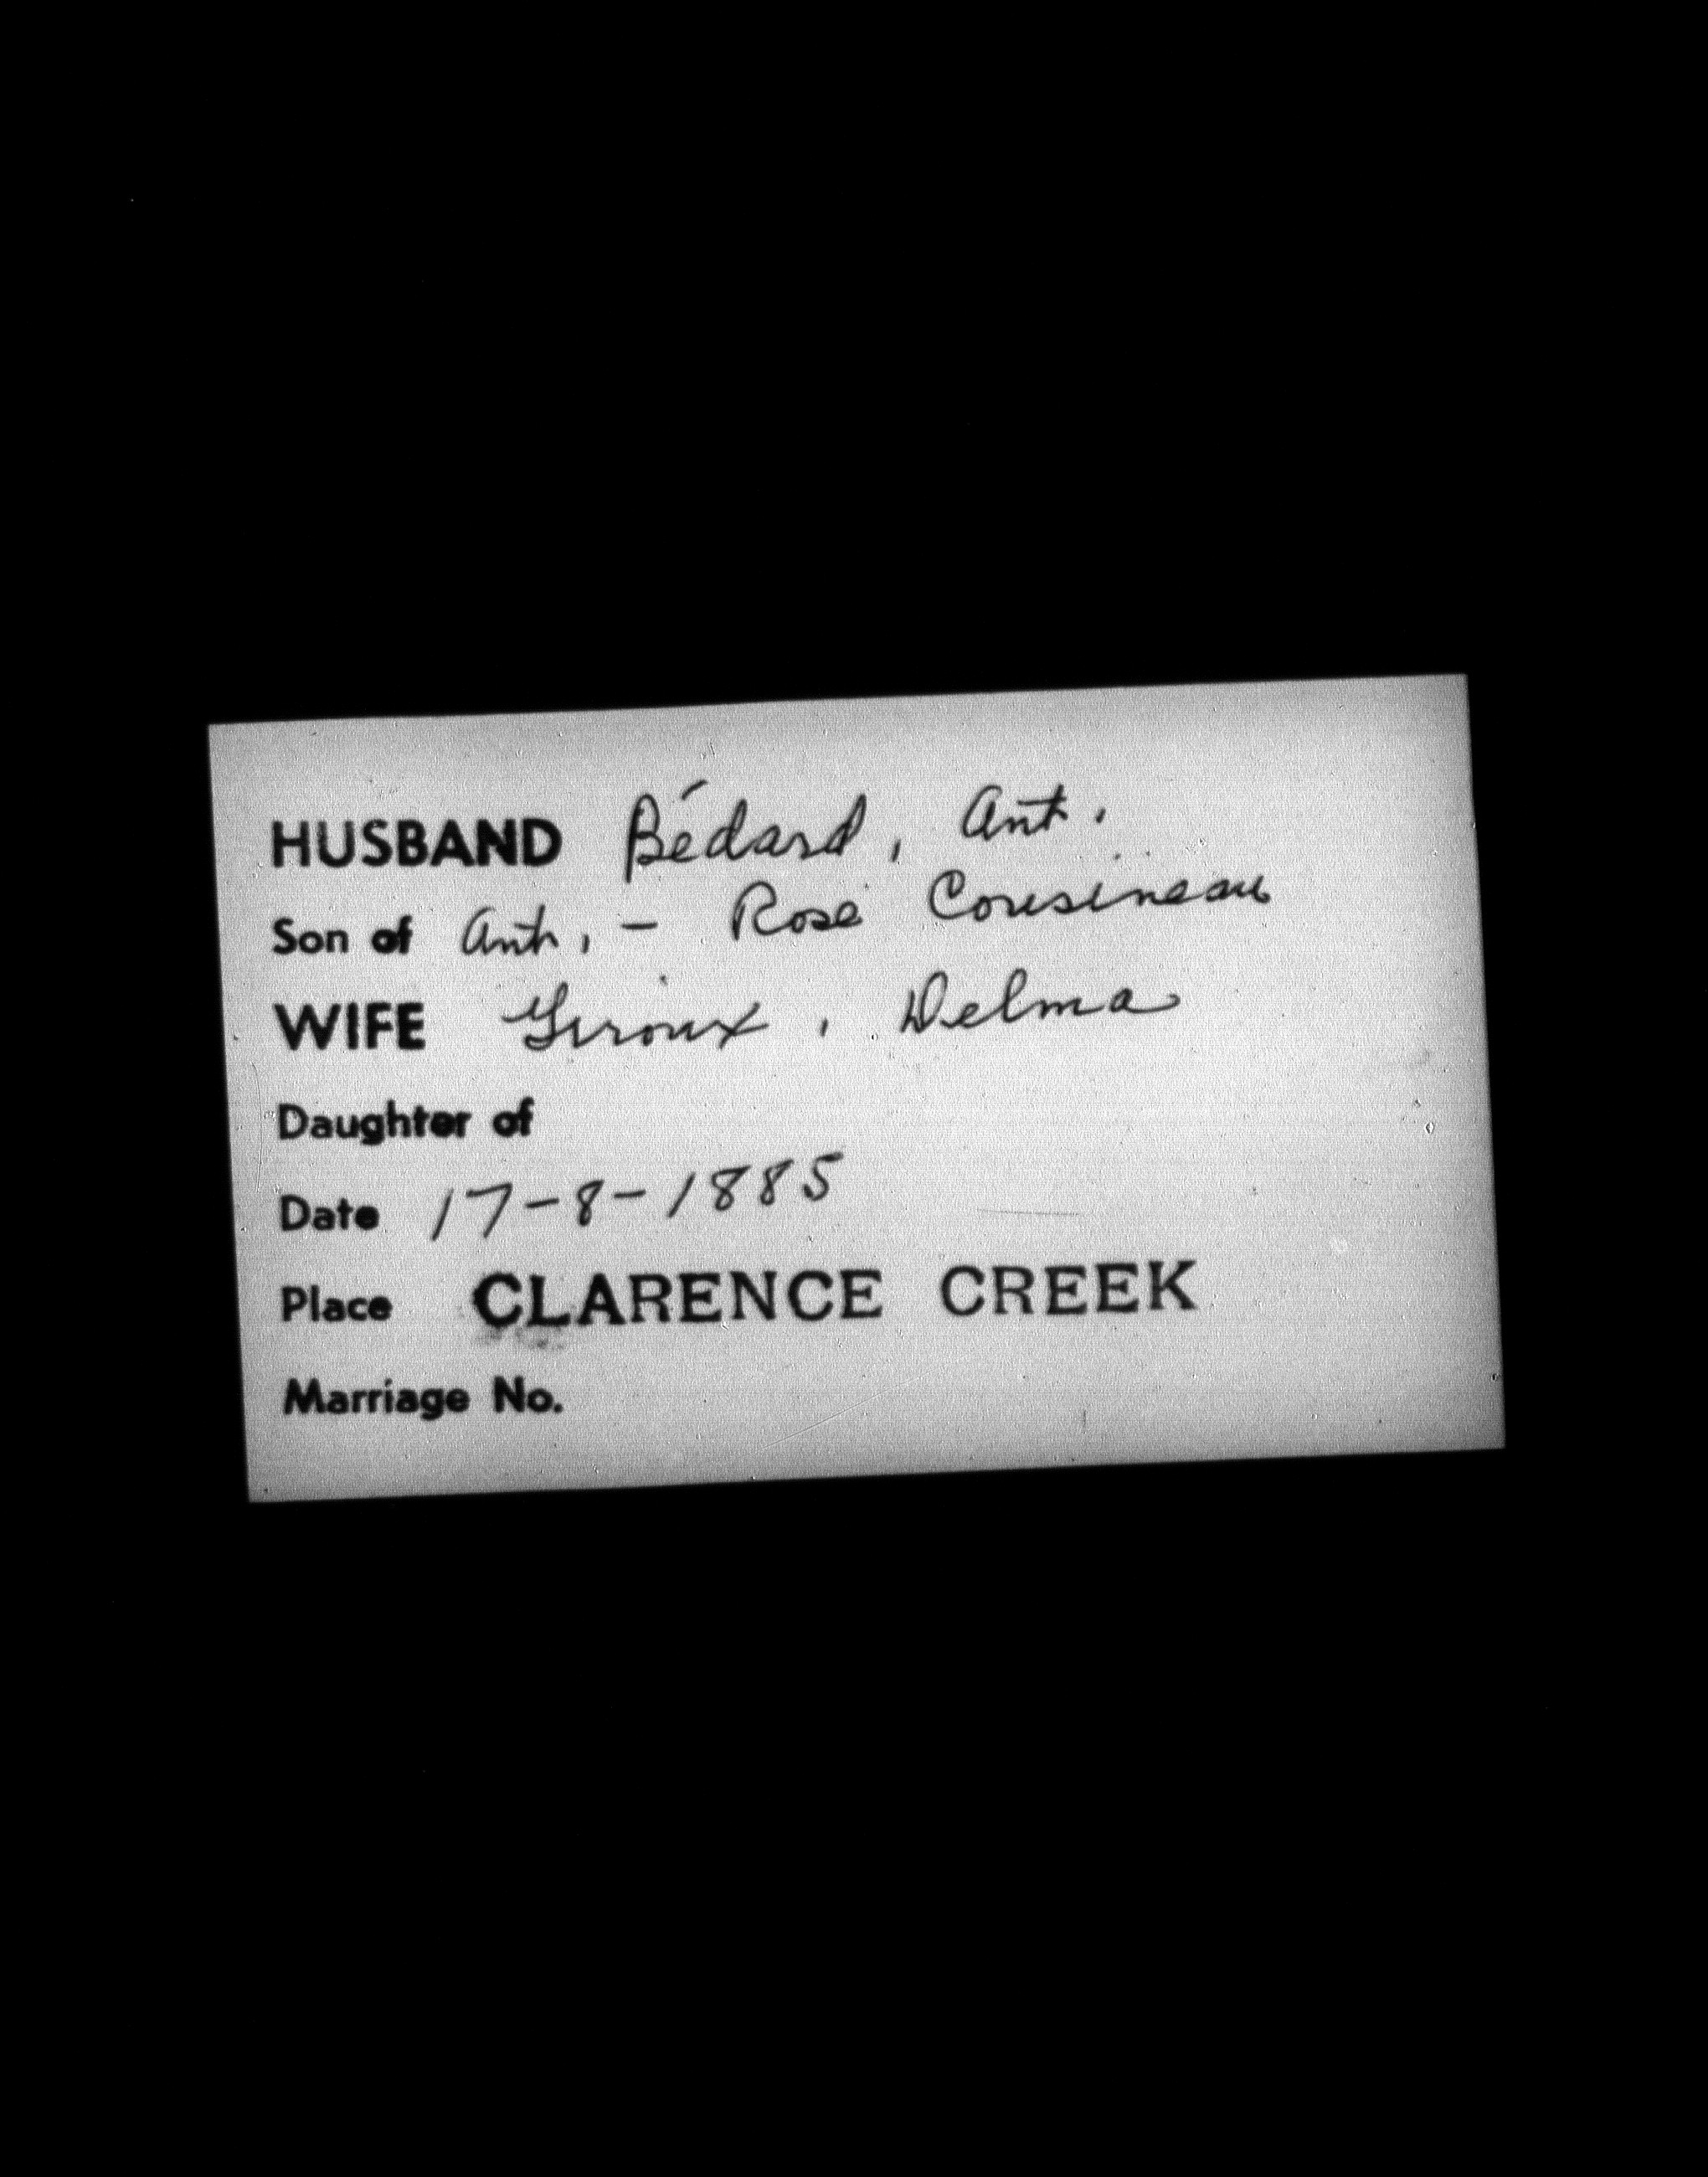 HUSBAND Bédard, Ant.
Son of Ant, - Rose Cousineau
WIFE Giroux, Delma
Daughter of
Date 17-8-1885
Place CLARENCE CREEK
Marriage No.